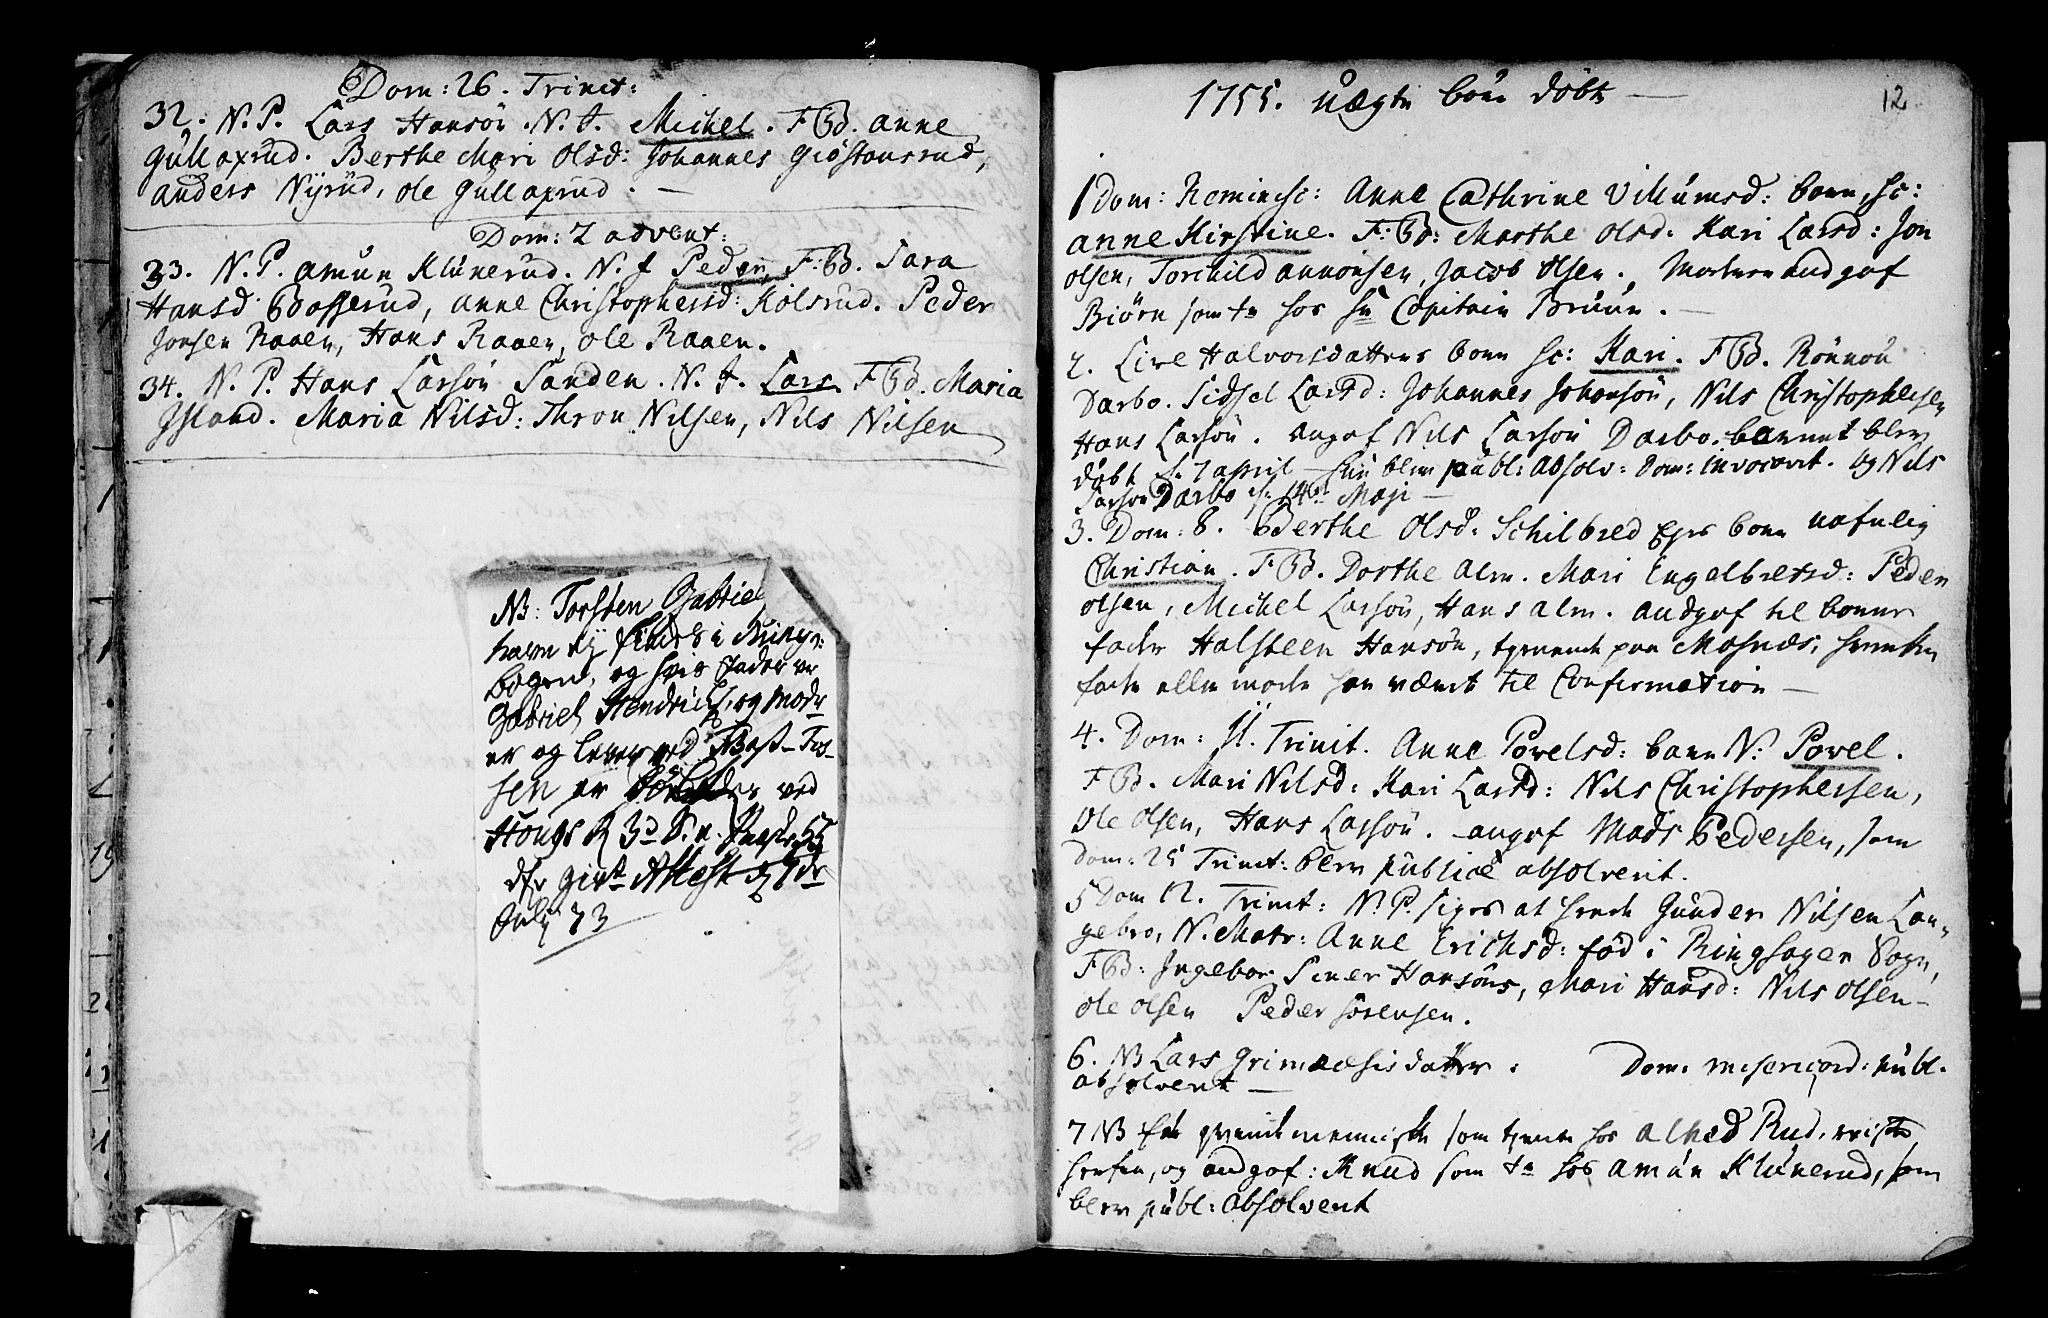 Dom: 26. Trinit:
32. N. P. Lars Hansøn. N. I. Michel. FB. anne
Gullaxrud. Berthe Mari Olsd: Johannes Giøstansrud,
anders Nyrud, ole Gullaxrud.
Dom: 2 advent:
33. N. P. amun Klunerud. N. I Peder, F:B. Sara
Hansd Bosserud, anne Christophersd: Kolsrud. Peder
Jonsen Raaen, Hans Raaen, ole Raaen.
34. N. P. Hans Larsøn Sanden. N. I. Lars FB. Maria
Island. Maria Nilsd: Thron Nilsen, Nils Nilsen
NB: Torsten Gabriel
havn
bogen, og hans fader var
Gabriel Hendrichs. og Moder
er og lever ved
sen er ved
Hougs K 3d S. p. Pasch 55
der givet Attest d 7de
Julj 73
12
1755. uægte børn døbte
1 Dom: Reminisc: Anne Cathrine Villumsd. barn, h:
anne Kirstine. F:B: Marthe olsd. Kari Larsd: Jon
olsen, Torchild annonsen, Jacob Olsen. Moderen andgaf
Biørn som tn hos hr Capitain Bruun.
2. Live Halvorsdatters barn h: Kari. FB. Rønnou
Darbo. Sidsel Larsd: Johannes Johansøn, Nils Christophersen
Hans Larsøn. angaf Nils Larsøn Darbo. barnet blev
døbt d. 7 april hun blev publ: absolv: Dom: invocavit. og Nils
Larsøn Darbo d: 14 Maji
3. Dom: 8. Berthe Olsd: Schilbred barn nafnlig
Christian. FB. Dorthe Alm. Mari Engelbretsd: Peder
olsen, Michel Larsøn, Hans alm. andgaf til barne
fader Halsteen Hansøn, tienende paa Mosnæs,
fader eller moder har været til Confirmation
4. Dom: 11. Trinit. Anne Povelsd: barn N: Povel.
FB. Mari Nilsd: Kari Larsd: Nils Christophersen,
Ole Olsen, Hans Larsøn. angaf Mads Pedersen, som
Dom: 25 Trinit: blev publice absolverit.
5 Dom 12. Trinit: N. P. siges at hede Gunder Nilsen Lan-
gebro, N. Matr: Anne Erichsd: fød i Ringsager Sogn,
FB: Ingebor Siver Hansøns, Mari Hansd: Nils Olsen
Ole Olsen Peder Sørensen.
6. NB Lars datter. Dom. misericord: publ.
absolverit
7 NB Et qvindemenniske som tiente hos Alhed Rud, reiste
herfra, og andgaf: Knud som tn hos amun Klunerud, som
blev publ: absolverit